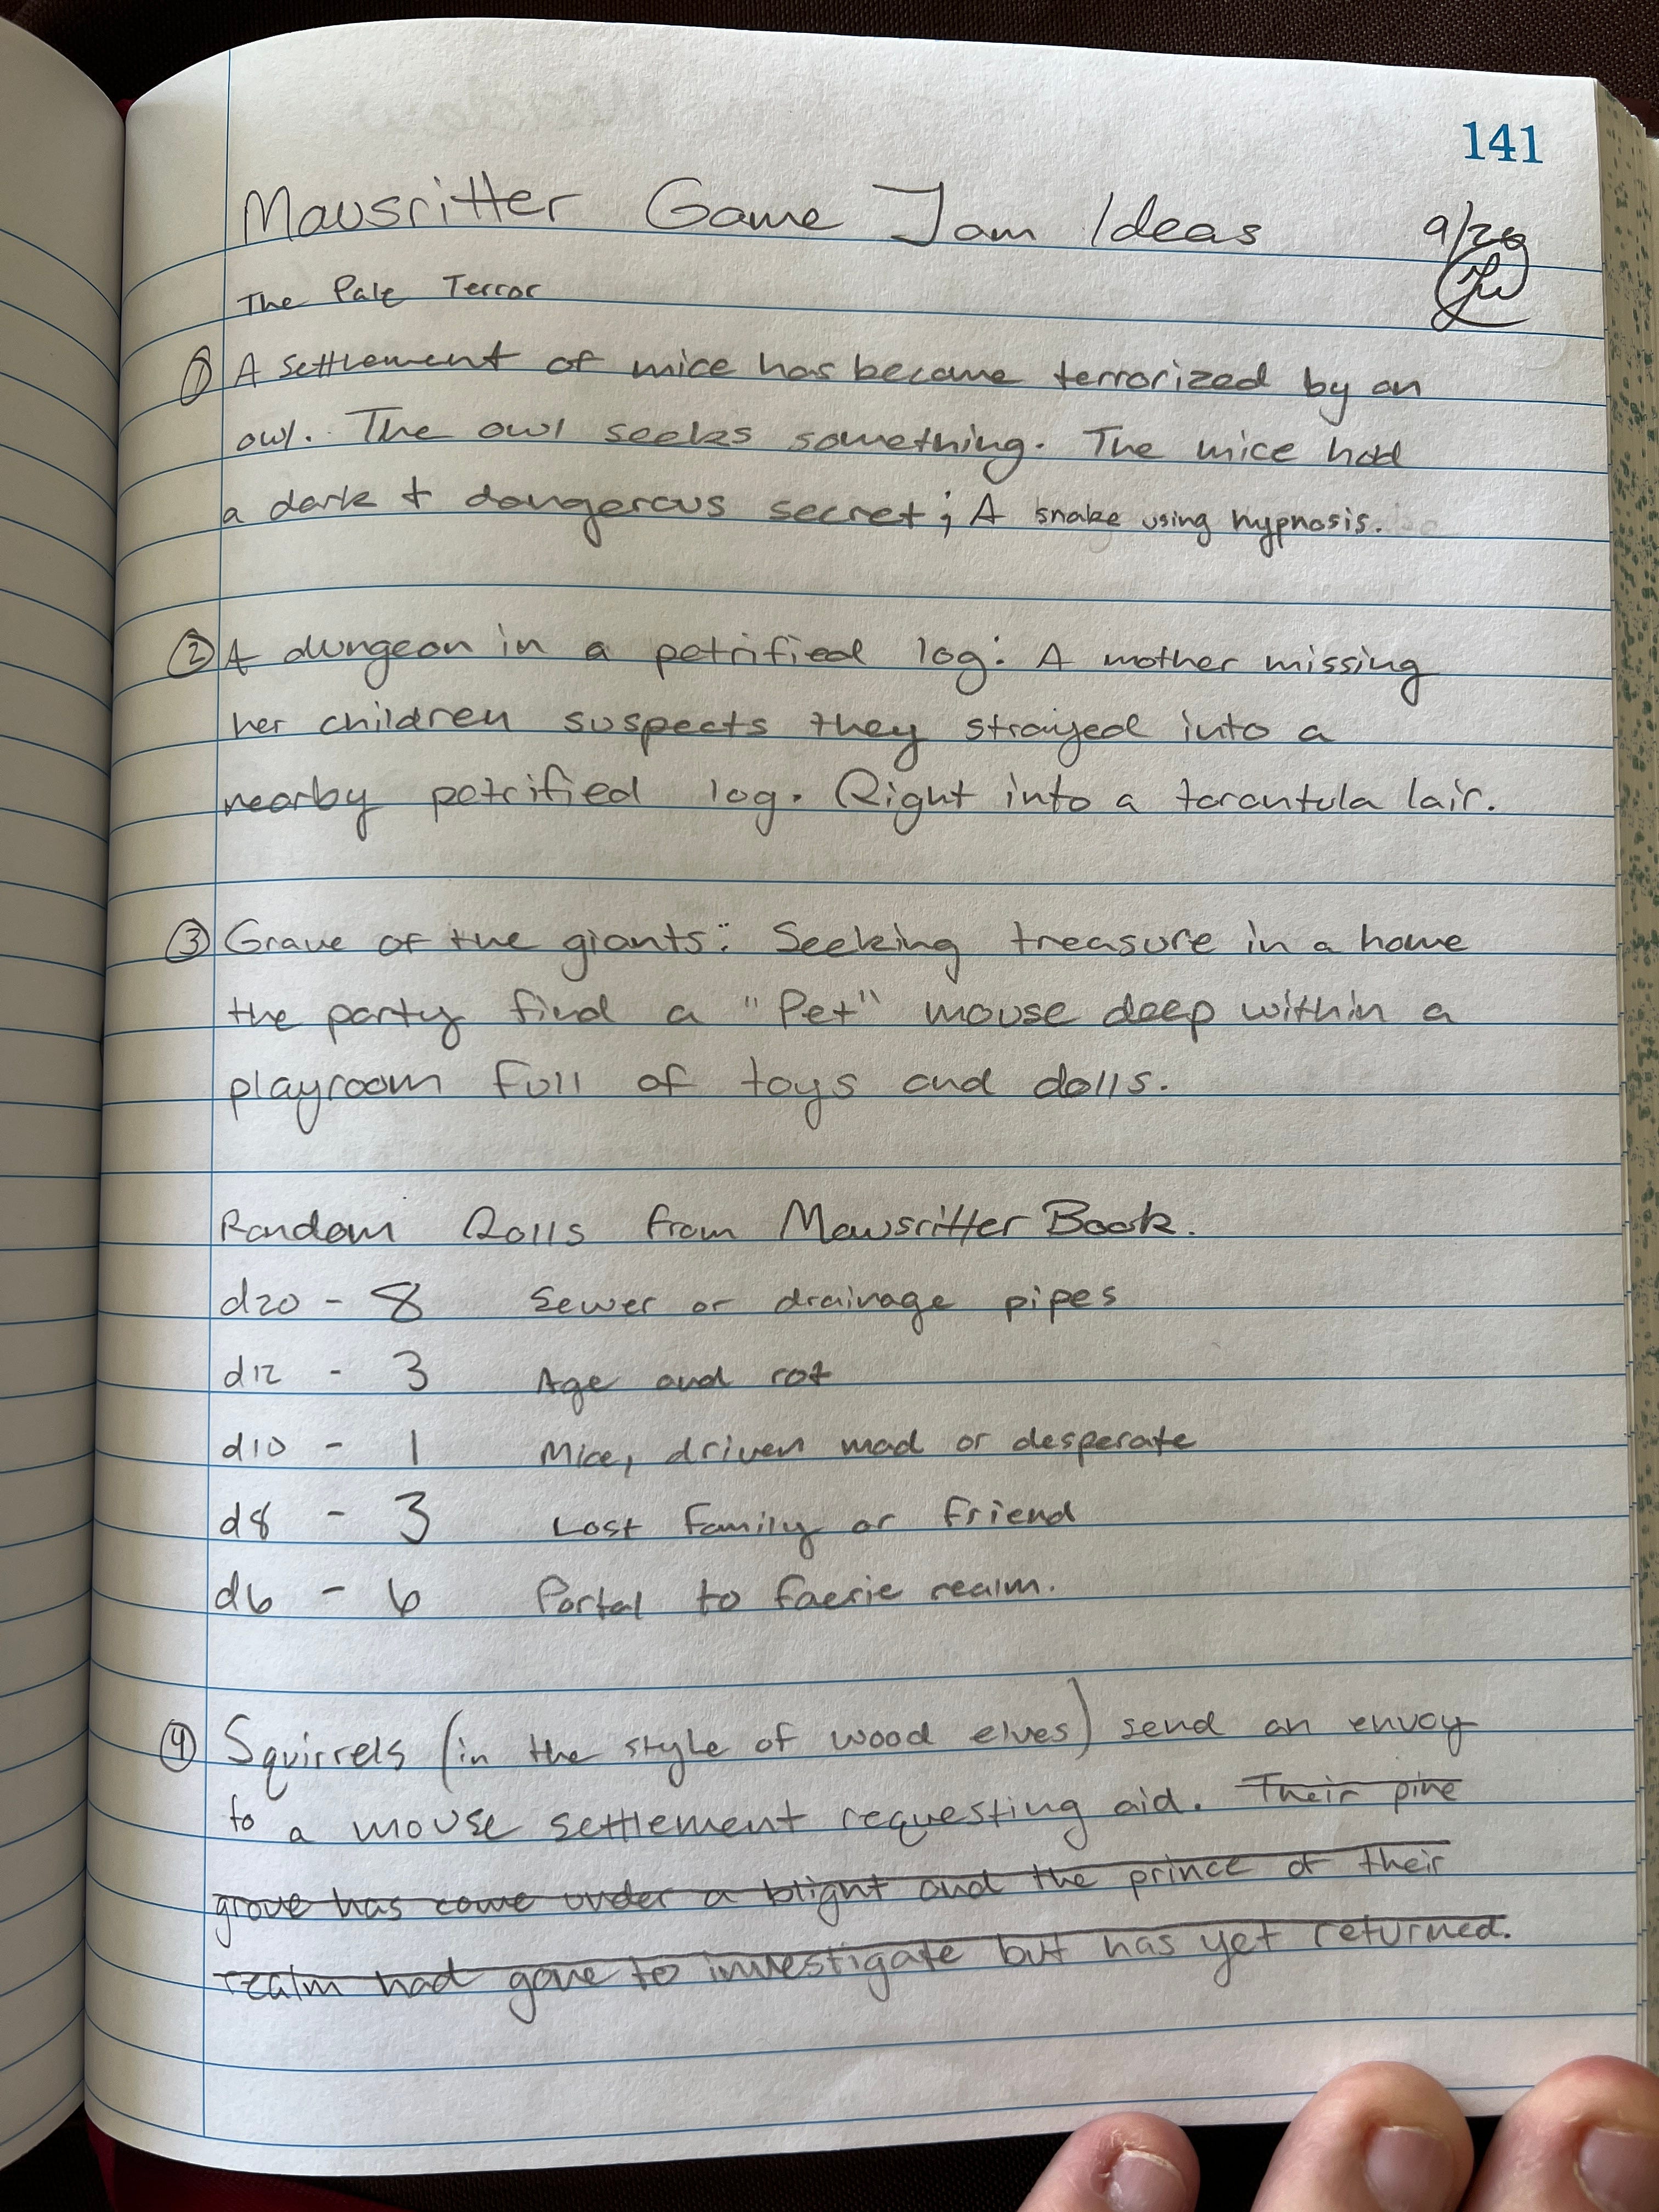 141
Mausritter Game Jam Ideas 9/20
The Pale Terror
① A settlement of mice has become terrorized by an
owl. The owl seeks something. The mice hold
a dark + dangerous secret; A snake using hypnosis.
② A dungeon in a petrified log: A mother missing
her children suspects they strayed into a
nearby petrified log. Right into a tarantula lair.
③ Grave of the giants: Seeking treasure in a home
the party find a "Pet" mouse deep within a
playroom full of toys and dolls.
Random Rolls from Mausritter Book.
d20 - 8 Sewer or drainage pipes
d12 - 3 Age and rot
d10 - 1 Mice, driven mad or desperate
d8 - 3 Lost family or friend
d6 - 6 Portal to faerie realm.
④ Squirrels (in the style of wood elves) send an envoy
to a mouse settlement requesting aid. Their pine
grove has come under a blight and the prince of their
realm had gone to investigate but has yet returned.